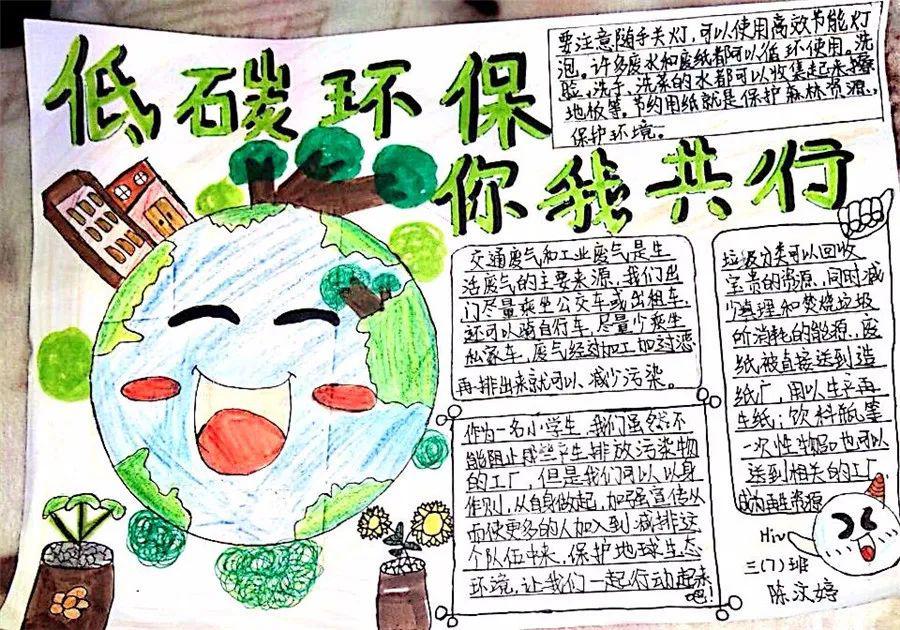 低碳环保
你我共行
要注意随手关灯，可以使用高效节能灯
泡。许多废水和废纸都可以循环使用。洗
脸、洗手、洗菜的水都可以收集起来擦
地板等。节约用纸就是保护森林资源，
保护环境。
交通废气和工业废气是生
活废气的主要来源，我们出
门尽量乘坐公交车或出租车，
还可以骑自行车，尽量少乘坐
私家车，废气经过加工加过滤
再排出来就可以减少污染。
作为一名小学生，我们虽然不
能阻止那些产生排放污染物
的工厂，但是我们可以以身
作则，从自身做起，加强宣传从
而使更多的人加入到减排这
个队伍中来，保护地球生态
环境，让我们一起行动起来
吧！
垃圾分类可以回收
宝贵的资源，同时减
少填埋和焚烧垃圾
所消耗的能源，废
纸被直接送到造
纸厂，用以生产再
生纸；饮料瓶等
一次性物品也可以
送到相关的工厂
成为再生资源
三(7)班